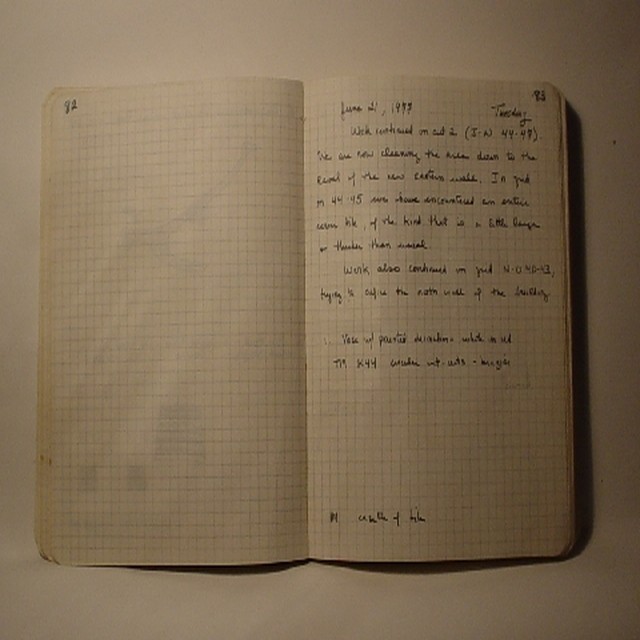 82
83
June 21, 1977 Tuesday
Work continued on cut 2 (I-N 44-47).
We are now cleaning the area down to the
level of the new eastern walls. In grid
M 44-45 we have encountered an entire
cover tile, of the kind that is a little larger
or thicker than usual.
Work also continued in grid N-O 40-43,
trying to define the north wall of the building
Vase w/ painted decoration white on red
K44
of tile